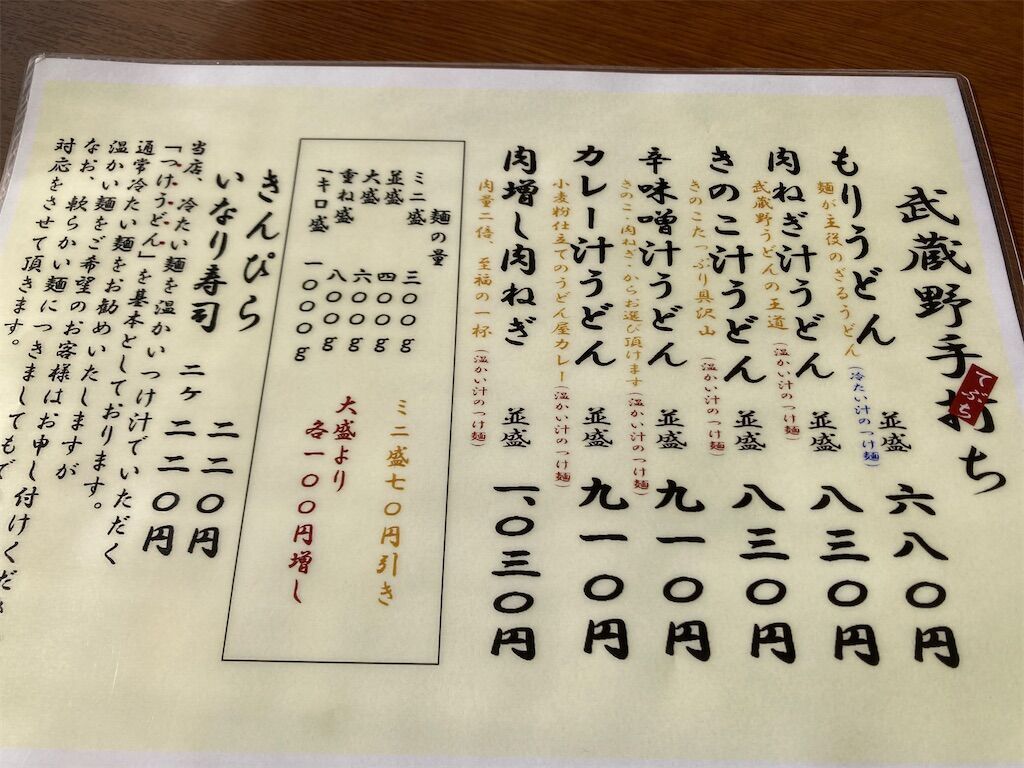 武蔵野手打ち
てぶち
もりうどん 並盛 六八〇円
麺が主役のざるうどん(冷たい汁のつけ麺)
肉ねぎ汁うどん 並盛 八三〇円
武蔵野うどんの王道(温かい汁のつけ麺)
きのこ汁うどん 並盛 八三〇円
きのこたっぷり具沢山(温かい汁のつけ麺)
辛味噌汁うどん 並盛 九一〇円
きのこ・肉ねぎ・からお選び頂けます(温かい汁のつけ麺)
カレー汁うどん 並盛 九一〇円
小麦粉仕立てのうどん屋カレー(温かい汁のつけ麺)
肉増し肉ねぎ 並盛 一、〇三〇円
肉量二倍、至福の一杯(温かい汁のつけ麺)
麺の量
ミニ盛 三〇〇g ミニ盛七〇円引き
並盛 四〇〇g
大盛 六〇〇g 大盛より
重ね盛 八〇〇g 各一〇〇円増し
一キロ盛 一〇〇〇g
きんぴら 二二〇円
いなり寿司 二ヶ 二二〇円
当店、冷たい麺を温かいつけ汁でいただく
「つけうどん」を基本としております。
通常冷たい麺をお勧めいたしますが
温かい麺をご希望のお客様はお申し付けくだ
なお、軟らかい麺につきましてもで
対応をさせて頂きます。